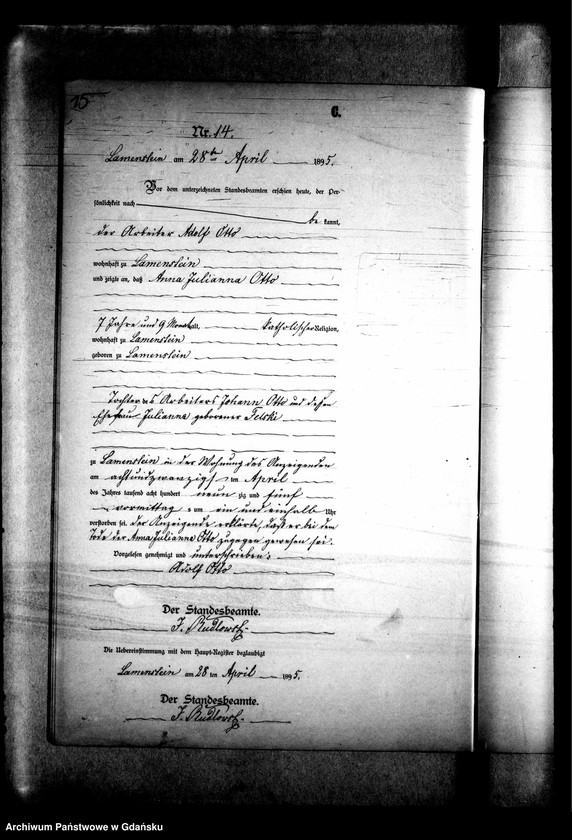 15
C.
Nr. 14.
Lamenstein am 28ten April 1895.
Vor dem unterzeichneten Standesbeamten erschien heute, der Per-
sönlichkeit nach
bekannt,
der Arbeiter Adolf Otto
wohnhaft zu Lamenstein
und zeigte an, daß Anna Julianna Otto
7 Jahre und 9 Monat alt, katholischer Religion,
wohnhaft zu Lamenstein
geboren zu Lamenstein
Tochter des Arbeiters Johann Otto und dessen
Ehefrau Julianna geborener Telski
zu Lamenstein in der Wohnung des Anzeigenden
am achtundzwanzigsten April
des Jahres tausend acht hundert neunzig und fünf
vormittag s um ein und einhalb Uhr
verstorben sei. Der Anzeigende erklärte, daß er bei dem
Tode der Anna Julianna Otto zugegen gewesen sei.
Vorgelesen genehmigt und unterschrieben:
Adolf Otto
Der Standesbeamte.
Die Uebereinstimmung mit dem Haupt-Register beglaubigt
Lamenstein am 28 ten April 1895.
Der Standesbeamte.
Archiwum Państwowe w Gdańsku